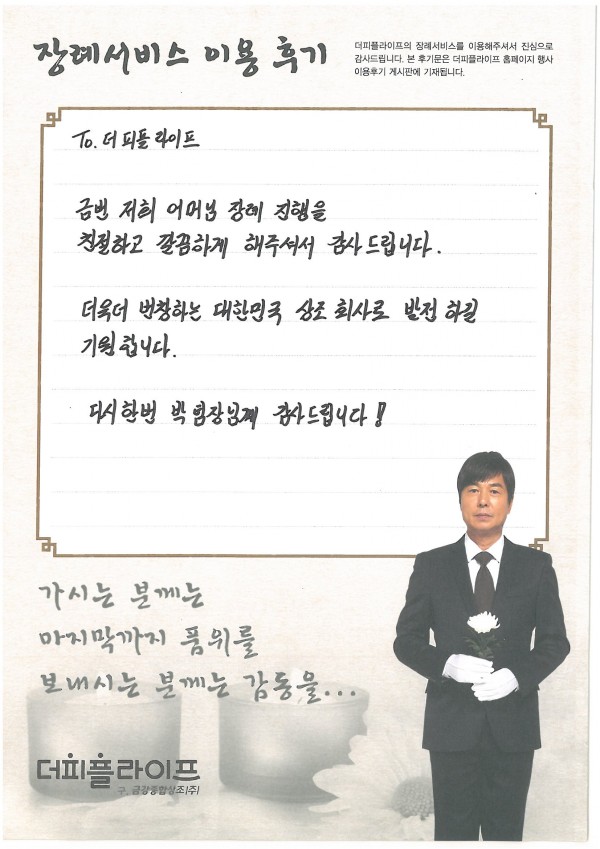 장례서비스 이용 후기
더피플라이프의 장례서비스를 이용해주셔서 진심으로
감사드립니다. 본 후기문은 더피플라이프 홈페이지 행사
이용후기 게시판에 기재됩니다.
To. 더피플라이프
금번 저희 어머님 장례 진행을
친절하고 깔끔하게 해주셔서 감사드립니다.
더욱더 번창하는 대한민국 상조 회사로 발전 하길
기원합니다.
다시한번 박팀장님께 감사드립니다!
가시는 분께는
마지막까지 품위를
보내시는 분께는 감동을...
더피플라이프
구. 금강종합상조(주)